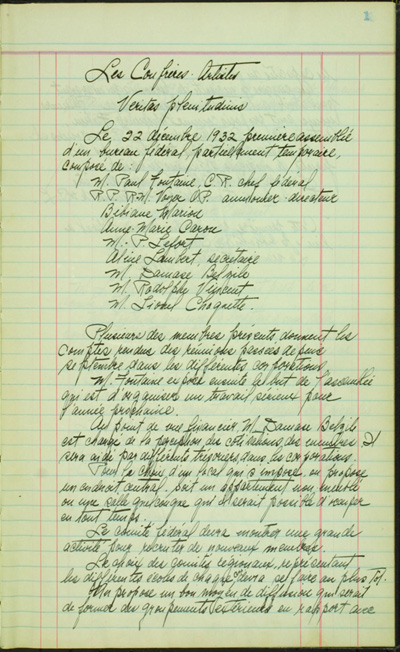 1
Les Confrères-Artistes
Veritas plenitudinis
Le 22 décembre 1932 première assemblée
d'un bureau fédéral, partiellement temporaire,
composé de:
M. Paul Fontaine, C.R. chef fédéral
R.P. P.M. O.P. aumônier-directeur
Bibiane Marion
Anne-Marie Caron
M. P. Lefort
Aline Lambert, secrétaire
M. Damase Belzile
M. Rodolphe Vincent
M. Lionel Choquette.
Plusieurs des membres présents donnent les
comptes rendus des réunions passées depuis
septembre dans les différentes corporations.
M. Fontaine expose ensuite le but de l'assemblée
qui est d'organiser un travail sérieux pour
l'année prochaine.
Au point de vue financier, M. Damase Belzile
est chargé de la perception des cotisations des membres et
sera aidé par différents trésoriers dans les corporations.
Pour le choix d'un local qui s'impose, on propose
un endroit central, soit un appartement non meublé
ou une salle quelconque qu'il serait possible d'occuper
en tout temps.
Le comité fédéral devra montrer une grande
activité pour recruter de nouveaux membres.
Le choix des comités régionaux, représentant
les différentes écoles de chaque devra se faire au plus tôt.
On propose un bon moyen de diffusion qui serait
de former des groupements extérieurs en rapport avec